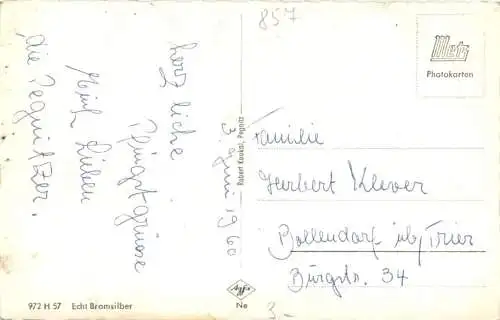 857
Metz
Photokarten
herzliche
Pfingstgrüsse
Euch Lieben
die Pegnitzer.
3. Juni 1960
Robert Koukal, Pegnitz
Familie
Herbert Klever
Bollendorf üb/Trier
Burgstr. 34
972 H 57 Echt Bromsilber
Ne
3.-